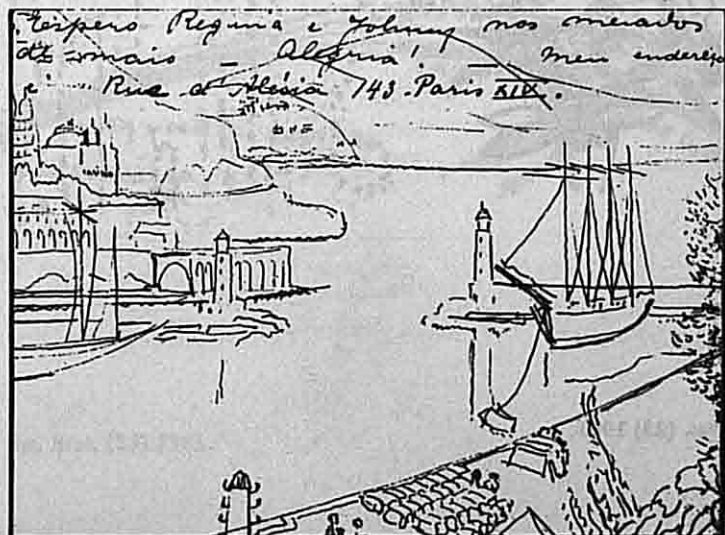 Espero Regina e Johnny nos meiados
de maio — Alegria! — Meu endereço
é: Rua d'Alésia 143. Paris XIV.